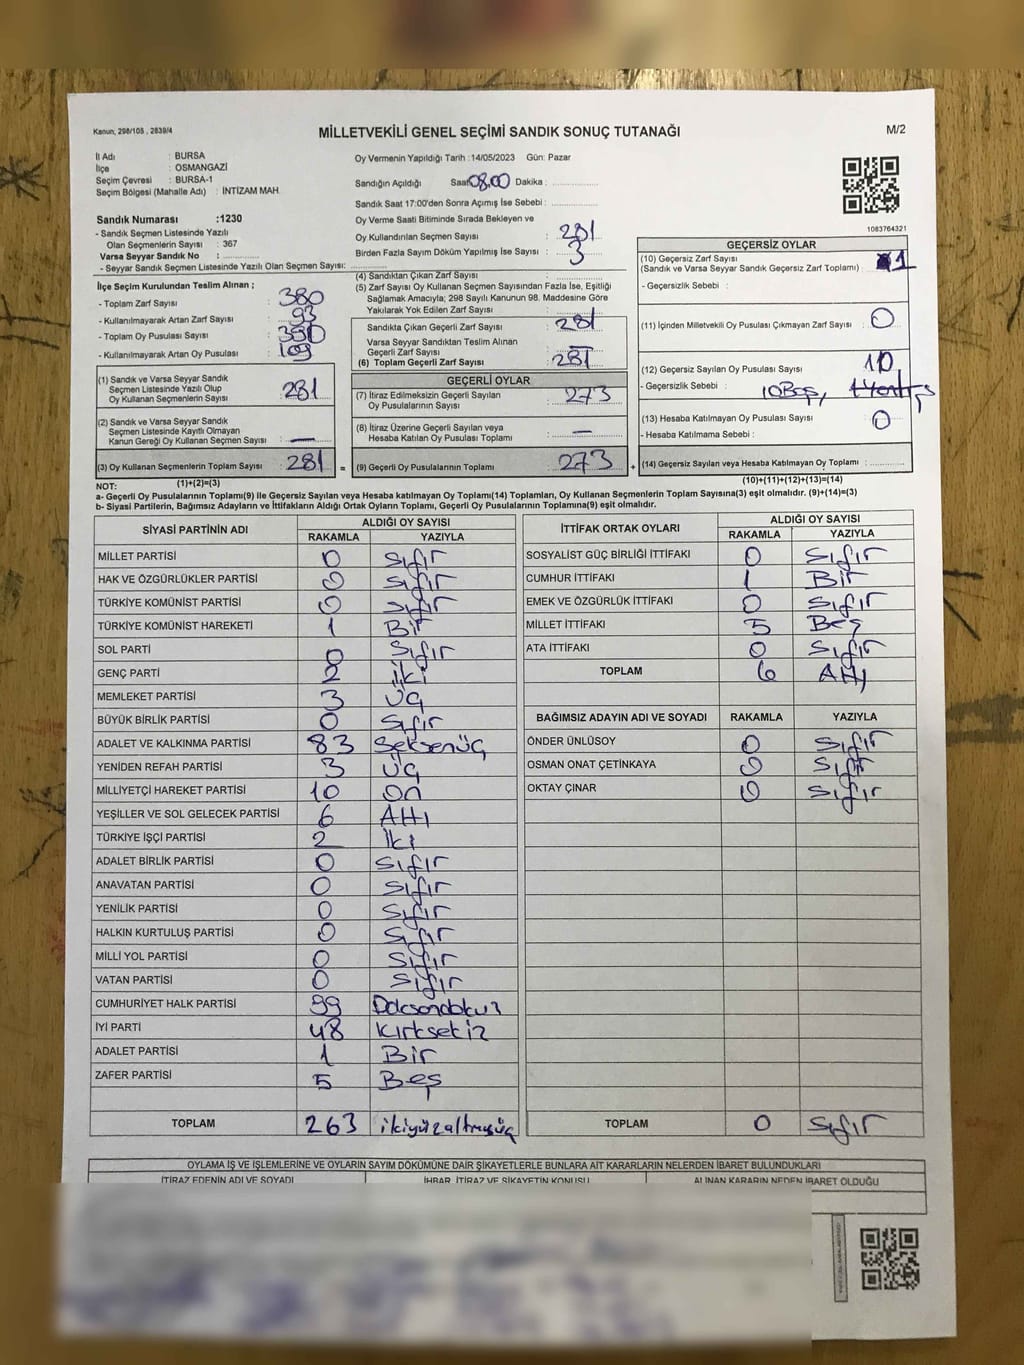 Kanun, 298/105 , 2839/4
MİLLETVEKİLİ GENEL SEÇİMİ SANDIK SONUÇ TUTANAĞI
M/2
İl Adı : BURSA
İlçe : OSMANGAZİ
Seçim Çevresi : BURSA-1
Seçim Bölgesi (Mahalle Adı) : İNTİZAM MAH.
Sandık Numarası :1230
- Sandık Seçmen Listesinde Yazılı
Olan Seçmenlerin Sayısı : 367
Varsa Seyyar Sandık No :
- Seyyar Sandık Seçmen Listesinde Yazılı Olan Seçmen Sayısı:
Oy Vermenin Yapıldığı Tarih :14/05/2023 Gün: Pazar
Sandığın Açıldığı Saat 08.00 Dakika :
Sandık Saat 17:00'den Sonra Açımış İse Sebebi :
Oy Verme Saati Bitiminde Sırada Bekleyen ve
Oy Kullandırılan Seçmen Sayısı : 281
Birden Fazla Sayım Döküm Yapılmış İse Sayısı : 3
1083764321
İlçe Seçim Kurulundan Teslim Alınan ;
- Toplam Zarf Sayısı : 380
- Kullanılmayarak Artan Zarf Sayısı : 93
- Toplam Oy Pusulası Sayısı :
- Kullanılmayarak Artan Oy Pusulası : 109
(1) Sandık ve Varsa Seyyar Sandık
Seçmen Listesinde Yazılı Olup
Oy Kullanan Seçmenlerin Sayısı : 281
(2) Sandık ve Varsa Seyyar Sandık
Seçmen Listesinde Kayıtlı Olmayan
Kanun Gereği Oy Kullanan Seçmen Sayısı : —
(3) Oy Kullanan Seçmenlerin Toplam Sayısı : 281 =
(1)+(2)=(3)
(4) Sandıktan Çıkan Zarf Sayısı :
(5) Zarf Sayısı Oy Kullanan Seçmen Sayısından Fazla İse, Eşitliği
Sağlamak Amacıyla; 298 Sayılı Kanunun 98. Maddesine Göre
Yakılarak Yok Edilen Zarf Sayısı :
Sandıkta Çıkan Geçerli Zarf Sayısı : 281
Varsa Seyyar Sandıktan Teslim Alınan
Geçerli Zarf Sayısı :
(6) Toplam Geçerli Zarf Sayısı : 281
GEÇERLİ OYLAR
(7) İtiraz Edilmeksizin Geçerli Sayılan
Oy Pusulalarının Sayısı : 273
(8) İtiraz Üzerine Geçerli Sayılan veya
Hesaba Katılan Oy Pusulası Toplamı : —
(9) Geçerli Oy Pusulalarının Toplamı : 273 +
GEÇERSİZ OYLAR
(10) Geçersiz Zarf Sayısı
(Sandık ve Varsa Seyyar Sandık Geçersiz Zarf Toplamı) : 1
- Geçersizlik Sebebi :
(11) İçinden Milletvekili Oy Pusulası Çıkmayan Zarf Sayısı : 0
(12) Geçersiz Sayılan Oy Pusulası Sayısı : 10
- Geçersizlik Sebebi : 10 Boş,
(13) Hesaba Katılmayan Oy Pusulası Sayısı : 0
- Hesaba Katılmama Sebebi :
(14) Geçersiz Sayılan veya Hesaba Katılmayan Oy Toplamı :
(10)+(11)+(12)+(13)=(14)
NOT:
a- Geçerli Oy Pusulalarının Toplamı(9) ile Geçersiz Sayılan veya Hesaba katılmayan Oy Toplamı(14) Toplamları, Oy Kullanan Seçmenlerin Toplam Sayısına(3) eşit olmalıdır. (9)+(14)=(3)
b- Siyasi Partilerin, Bağımsız Adayların ve İttifakların Aldığı Ortak Oyların Toplamı, Geçerli Oy Pusulalarının Toplamına(9) eşit olmalıdır.
SİYASİ PARTİNİN ADI ALDIĞI OY SAYISI
RAKAMLA YAZIYLA
MİLLET PARTİSİ 0 Sıfır
HAK VE ÖZGÜRLÜKLER PARTİSİ 0 Sıfır
TÜRKİYE KOMÜNİST PARTİSİ 0 Sıfır
TÜRKİYE KOMÜNİST HAREKETİ 1 Bir
SOL PARTİ 0 Sıfır
GENÇ PARTİ 2 İki
MEMLEKET PARTİSİ 3 Üç
BÜYÜK BİRLİK PARTİSİ 0 Sıfır
ADALET VE KALKINMA PARTİSİ 83 Seksenüç
YENİDEN REFAH PARTİSİ 3 Üç
MİLLİYETÇİ HAREKET PARTİSİ 10 On
YEŞİLLER VE SOL GELECEK PARTİSİ 6 Altı
TÜRKİYE İŞÇİ PARTİSİ 2 İki
ADALET BİRLİK PARTİSİ 0 Sıfır
ANAVATAN PARTİSİ 0 Sıfır
YENİLİK PARTİSİ 0 Sıfır
HALKIN KURTULUŞ PARTİSİ 0 Sıfır
MİLLİ YOL PARTİSİ 0 Sıfır
VATAN PARTİSİ 0 Sıfır
CUMHURİYET HALK PARTİSİ 99 Doksandokuz
İYİ PARTİ 48 Kırksekiz
ADALET PARTİSİ 1 Bir
ZAFER PARTİSİ 5 Beş
TOPLAM 263 ikiyüzaltmışüç
İTTİFAK ORTAK OYLARI ALDIĞI OY SAYISI
RAKAMLA YAZIYLA
SOSYALİST GÜÇ BİRLİĞİ İTTİFAKI 0 Sıfır
CUMHUR İTTİFAKI 1 Bir
EMEK VE ÖZGÜRLÜK İTTİFAKI 0 Sıfır
MİLLET İTTİFAKI 5 Beş
ATA İTTİFAKI 0 Sıfır
TOPLAM 6 Altı
BAĞIMSIZ ADAYIN ADI VE SOYADI RAKAMLA YAZIYLA
ÖNDER ÜNLÜSOY 0 Sıfır
OSMAN ONAT ÇETİNKAYA 0 Sıfır
OKTAY ÇINAR 0 Sıfır
TOPLAM 0 Sıfır
OYLAMA İŞ VE İŞLEMLERİNE VE OYLARIN SAYIM DÖKÜMÜNE DAİR ŞİKAYETLERLE BUNLARA AİT KARARLARIN NELERDEN İBARET BULUNDUKLARI
İTİRAZ EDENİN ADI VE SOYADI İHBAR, İTİRAZ VE ŞİKAYETİN KONUSU ALINAN KARARIN NEDEN İBARET OLDUĞU